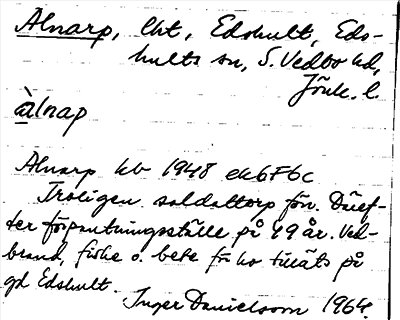 Alnarp, lht, Edshult, Eds-
hults sn, S. Vedbo hd,
Jönk. l.
àlnap
Alnarp kb 1948 ek6F6c
Troligen soldattorp förr. Däref-
ter förpantningsställe på 49 år. Ved-
brand, fiske o. bete för ko tilläts på
gd Edshult.
Inger Danielsson 1964.